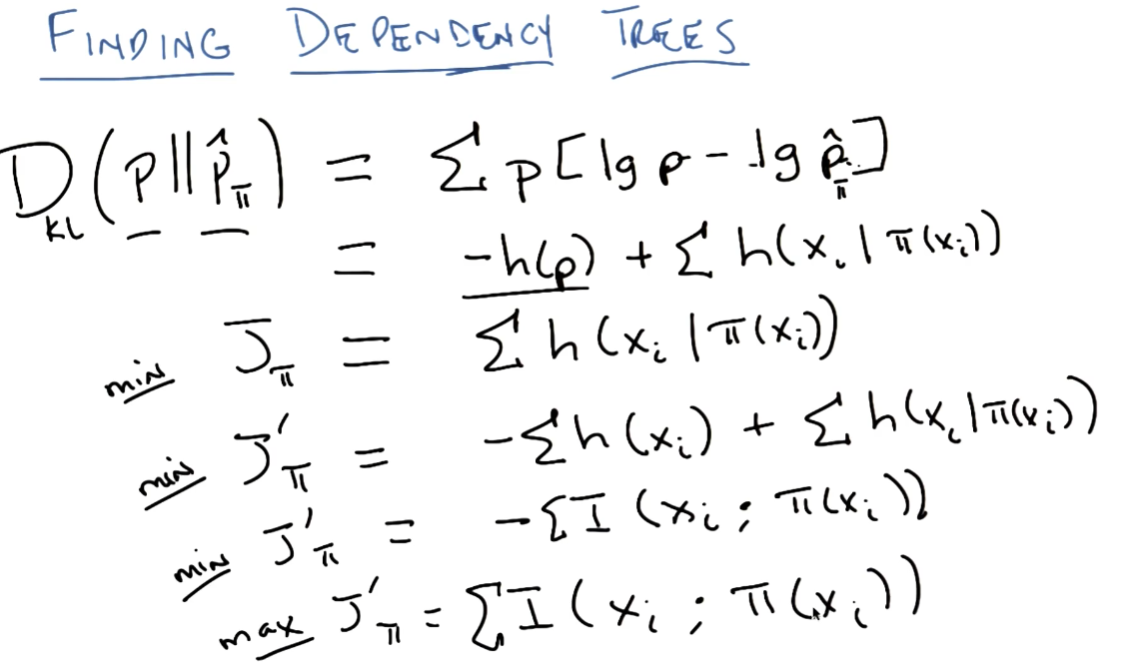 FINDING DEPENDENCY TREES
D_KL(p||p̂_π) = Σ p[lg p - lg p̂_π]
= -h(p) + Σ h(x_i|π(x_i))
min J_π = Σ h(x_i|π(x_i))
min J'_π = -Σh(x_i) + Σ h(x_i|π(x_i))
min J'_π = -Σ I(x_i; π(x_i))
max J'_π = Σ I(x_i; π(x_i))